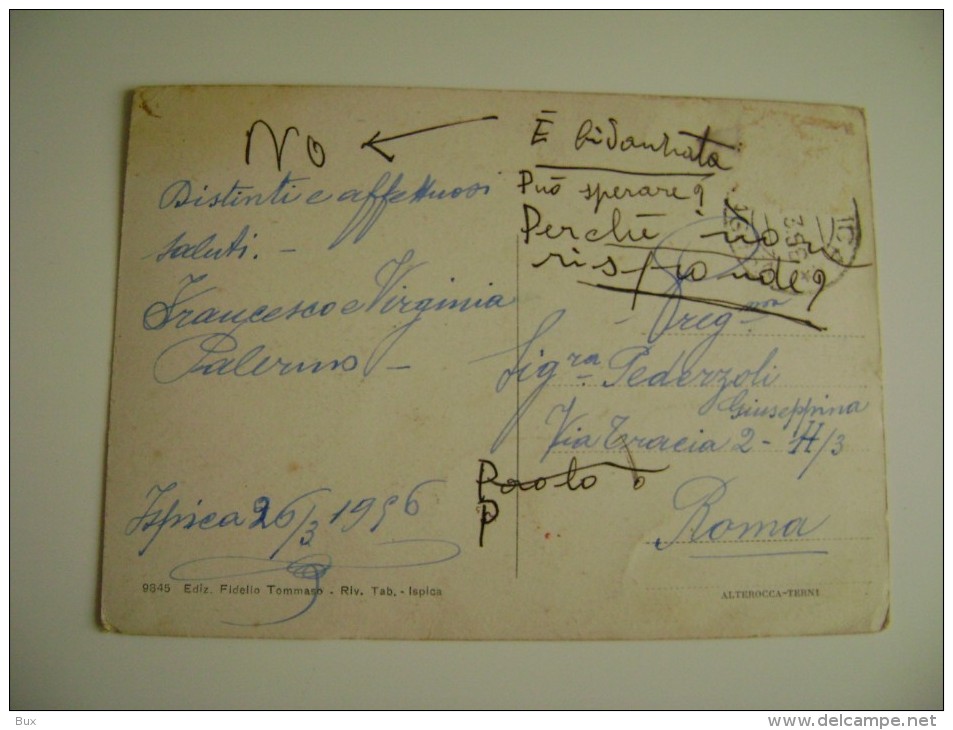 NO
È fidanzata
Può sperare?
Perché non
risponde?
Distinti e affettuosi
saluti. -
Francesco e Virginia
Palermo -
Ispica 26/3 1956
Preg.
Sig.ra Pederzoli
Giuseppina
Via Tracia 2 - H/3
Roma
Paolo
P
9845 Ediz. Fidelio Tommaso - Riv. Tab. - Ispica
ALTEROCCA-TERNI
Bux
www.delcampe.net